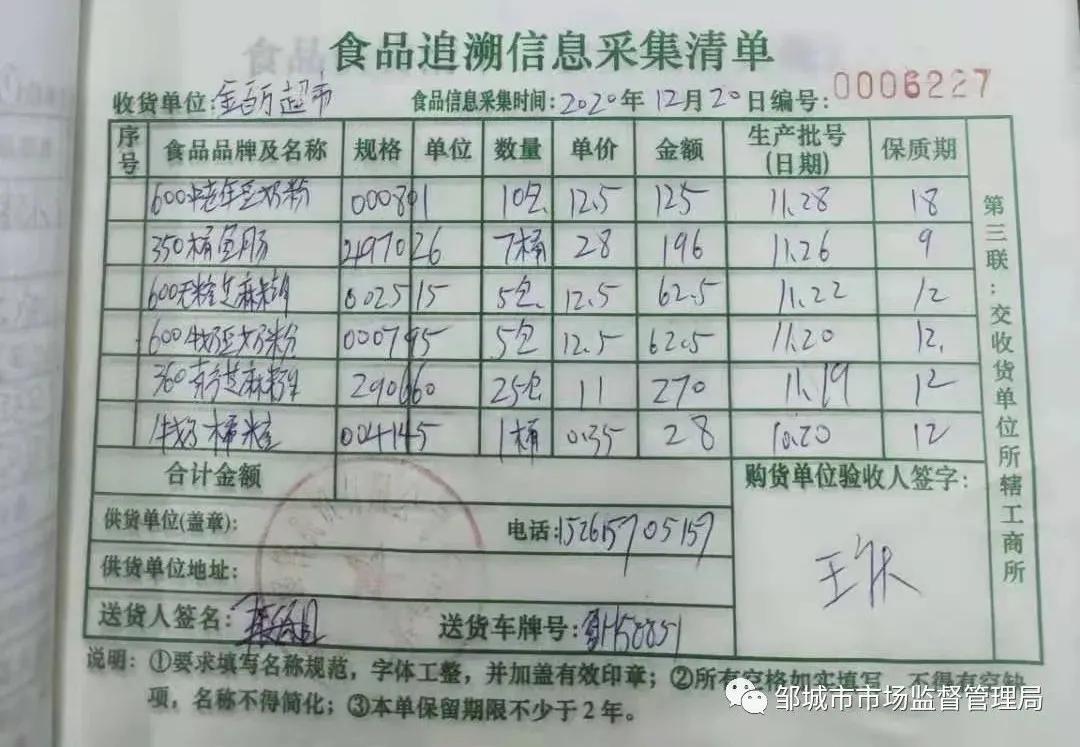 食品追溯信息采集清单
收货单位:金百万超市 食品信息采集时间:2020年12月20日编号:0006227
序号 食品品牌及名称 规格 单位 数量 单价 金额 生产批号(日期) 保质期
600中老年豆奶粉 000801 10包 12.5 125 11.28 18
350桶鱼肠 2497026 7桶 28 196 11.26 9
600无糖芝麻糊 002515 5包 12.5 62.5 11.22 12
600牛奶豆奶粉 000795 5包 12.5 62.5 11.20 12.
360芝麻糊 290660 25包 11 270 11.19 12
牛奶桶 004145 1桶 0.35 28 10.20 12
合计金额 购货单位验收人签字:
供货单位(盖章): 电话:152615705157
供货单位地址:
王
送货人签名: 送货车牌号:
第三联:交收货单位所辖工商所
说明:①要求填写名称规范，字体工整，并加盖有效印章；②所有空格如实填写，不得有空缺
项，名称不得简化；③本单保留期限不少于2年。
邹城市市场监督管理局